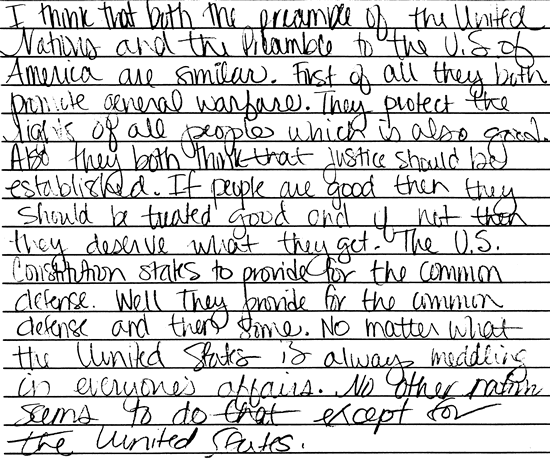 I think that both the preamble of the United
Nations and the Preamble to the U.S. of
America are similar. First of all they both
promote general warfare. They protect the
rights of all people which is also good.
Also they both think that justice should be
established. If people are good then they
should be treated good and if not then
they deserve what they get. The U.S.
Constitution states to provide for the common
defense. Well they provide for the common
defense and then some. No matter what
the Uunited States is always meddling
in everyone's affairs. No other nation
seems to do that except for
the Uunited States.